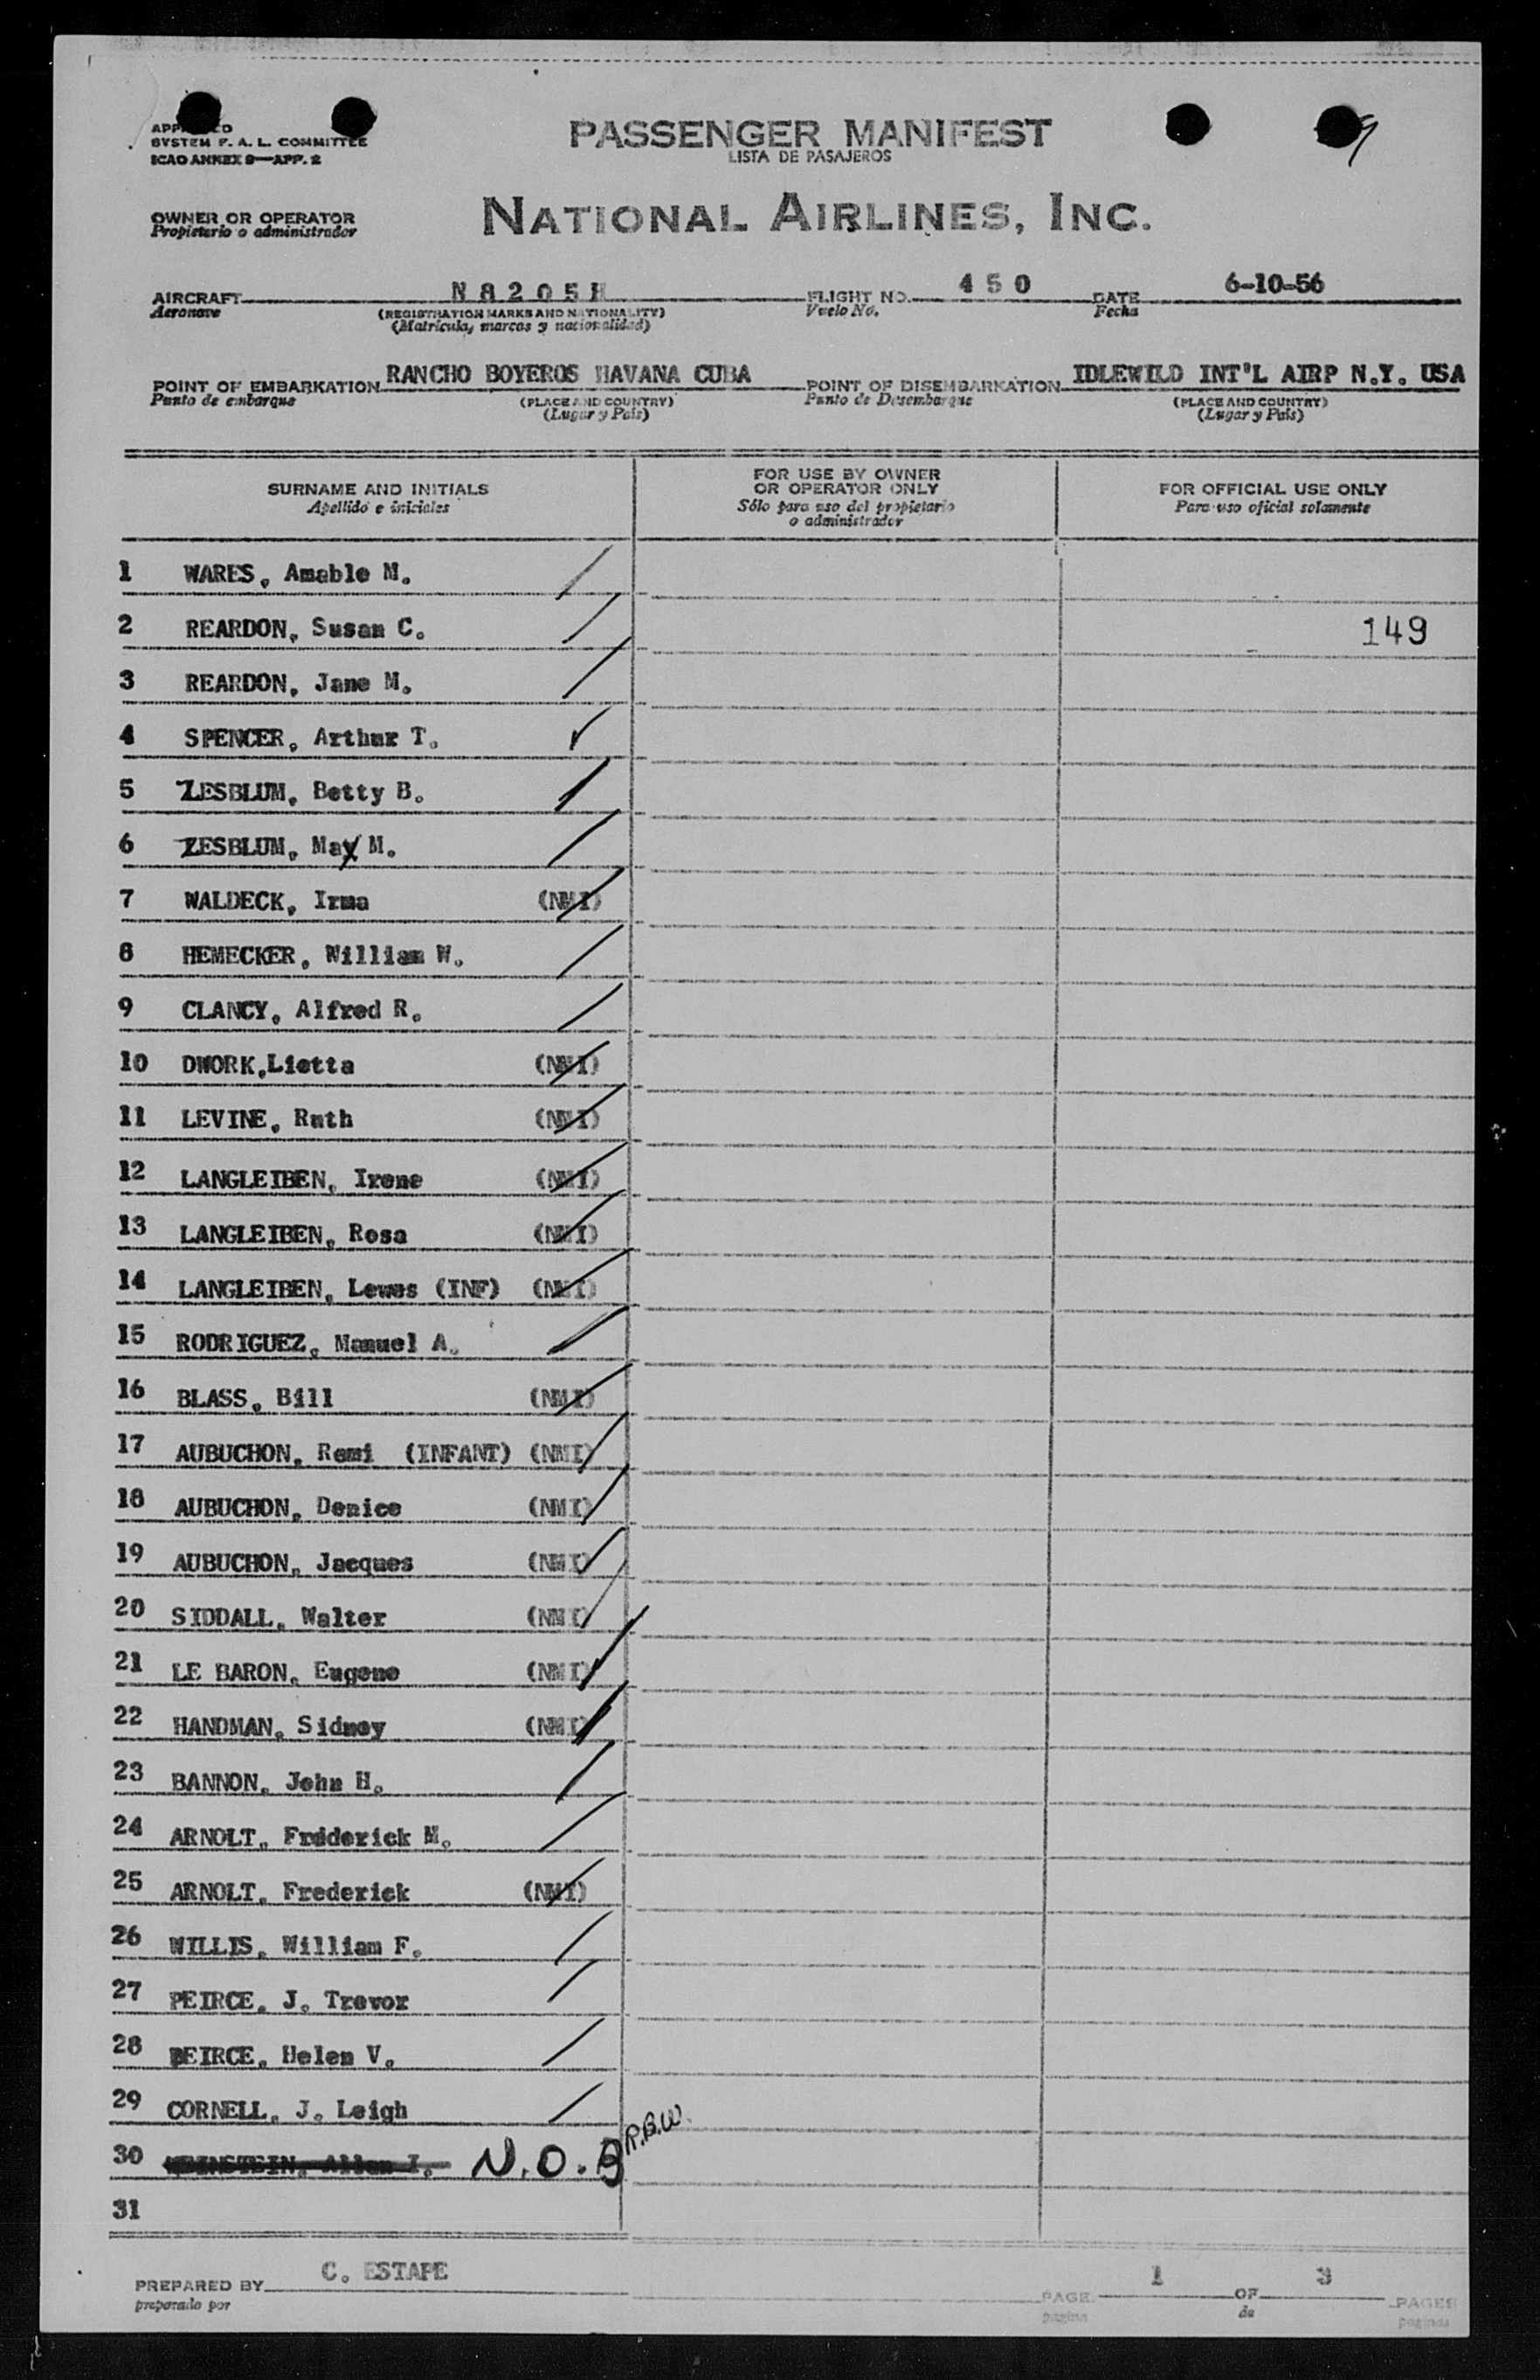 APP ED
SYSTEM F. A. L. COMMITTEE
ICAO ANNEX 9—APP. 2
PASSENGER MANIFEST
LISTA DE PASAJEROS
9
OWNER OR OPERATOR
Propietario o administrador
NATIONAL AIRLINES, INC.
AIRCRAFT N8205H FLIGHT NO. 450 DATE 6-10-56
Aeronave (REGISTRATION MARKS AND NATIONALITY) Vuelo No. Fecha
(Matricula, marcas y nacionalidad)
POINT OF EMBARKATION RANCHO BOYEROS HAVANA CUBA POINT OF DISEMBARKATION IDLEWILD INT'L AIRP N.Y. USA
Punto de embarque (PLACE AND COUNTRY) Punto de Desembarque (PLACE AND COUNTRY)
(Lugar y País) (Lugar y País)
SURNAME AND INITIALS
Apellido e iniciales
FOR USE BY OWNER
OR OPERATOR ONLY
Sólo para uso del propietario
o administrador
FOR OFFICIAL USE ONLY
Para uso oficial solamente
1 WARES, Amable M.
2 REARDON, Susan C. 149
3 REARDON, Jane M.
4 SPENCER, Arthur T.
5 ZESBLUM, Betty B.
6 ZESBLUM, Max M.
7 WALDECK, Irma (NMI)
8 HEMECKER, William W.
9 CLANCY, Alfred R.
10 DWORK,Lietta (NMI)
11 LEVINE, Ruth (NMI)
12 LANGLEIBEN, Irene (NMI)
13 LANGLEIBEN, Rosa (NMI)
14 LANGLEIBEN, Lewes (INF) (NMI)
15 RODRIGUEZ, Manuel A.
16 BLASS, Bill (NMI)
17 AUBUCHON, Remi (INFANT) (NMI)
18 AUBUCHON, Denice (NMI)
19 AUBUCHON, Jacques (NMI)
20 SIDDALL, Walter (NMI)
21 LE BARON, Eugene (NMI)
22 HANDMAN, Sidney (NMI)
23 BANNON, John H.
24 ARNOLT, Frederick M.
25 ARNOLT, Frederick (NMI)
26 WILLIS, William F.
27 PEIRCE, J. Trevor
28 PEIRCE, Helen V.
29 CORNELL, J. Leigh
30 WEINSTEIN, Allen I. N.O.B R.B.W.
31
PREPARED BY C. ESTAPE PAGE 1 OF 3 PAGES
preparado por pagina de paginas